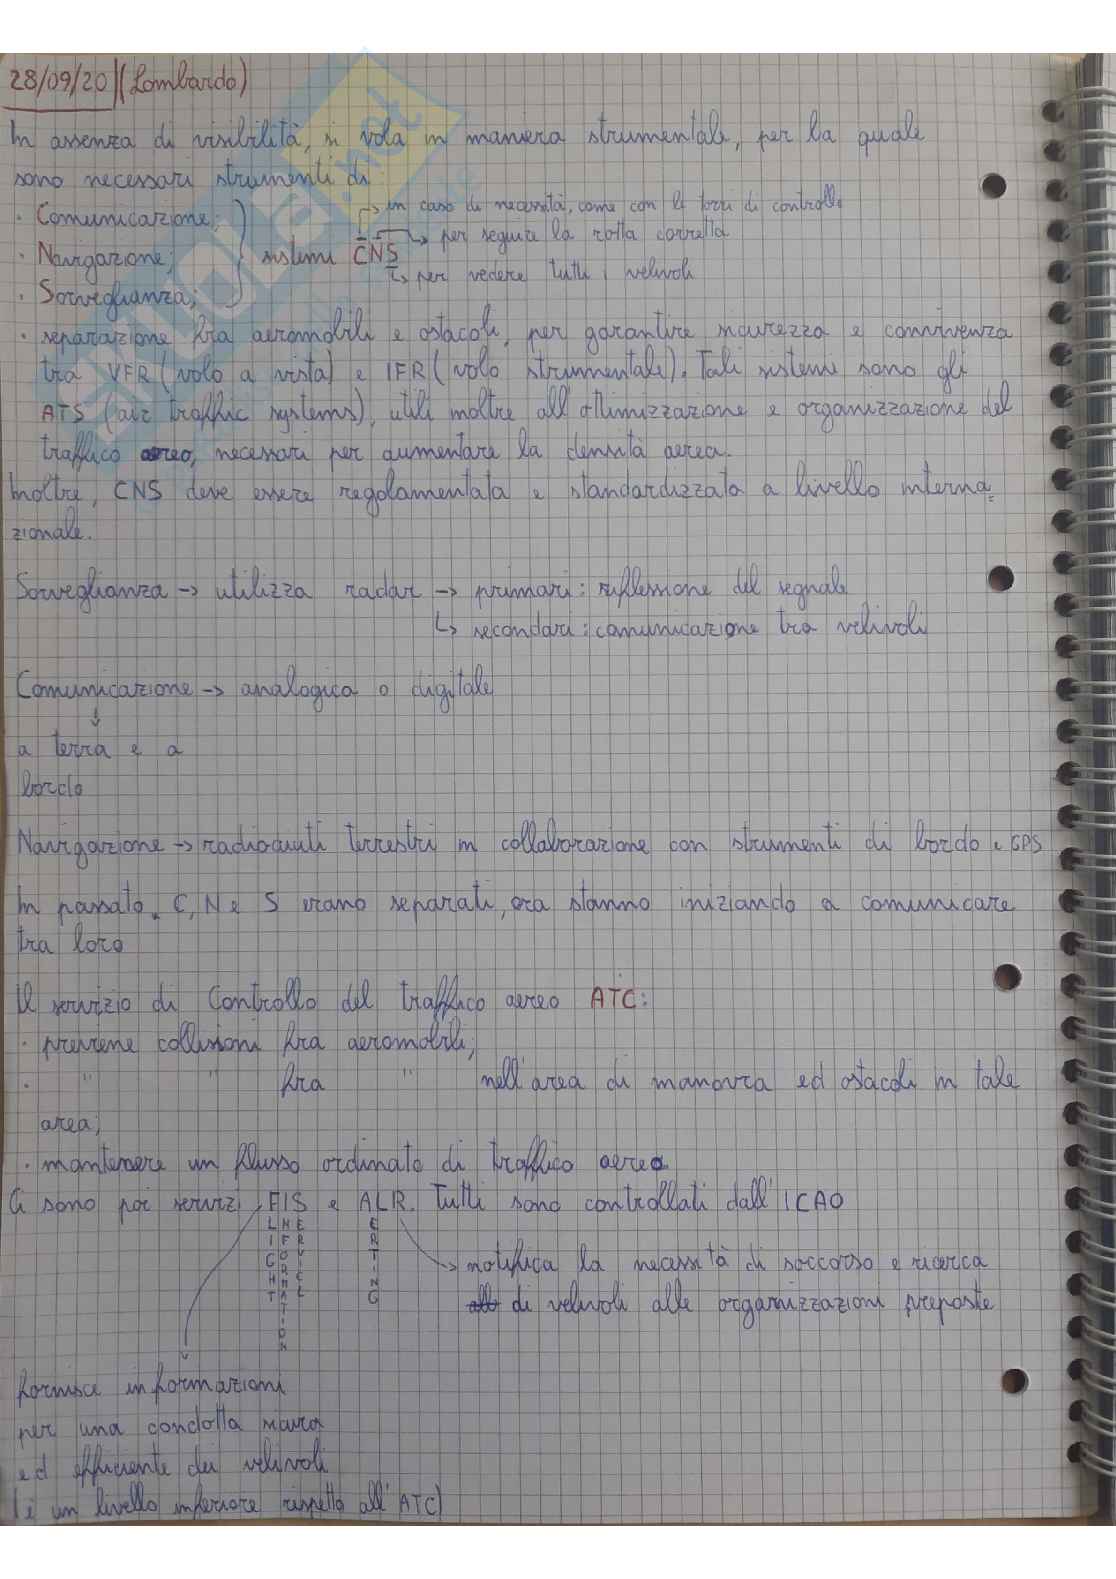 28/09/20 (Lombardo)
In assenza di visibilità, si vola in maniera strumentale, per la quale
sono necessari strumenti di:
· Comunicazione;
· Navigazione;
· Sorveglianza;
sistemi CNS
→ in caso di necessità, come con le torri di controllo
↳ per seguire la rotta corretta
↳ per vedere tutti i velivoli
· separazione fra aeromobili e ostacoli, per garantire sicurezza e convivenza
tra VFR (volo a vista) e IFR (volo strumentale). Tali sistemi sono gli
ATS (air traffic systems), utili inoltre all'ottimizzazione e organizzazione del
traffico aereo, necessari per aumentare la densità aerea.
Inoltre, CNS deve essere regolamentata e standardizzata a livello interna=
zionale.
Sorveglianza → utilizza radar → primari: riflessione del segnale
↳ secondari: comunicazione tra velivoli
Comunicazione → analogica o digitale
↓
a terra e a
bordo
Navigazione → radioaiuti terrestri in collaborazione con strumenti di bordo e GPS
In passato, C, N e S erano separati, ora stanno iniziando a comunicare
tra loro
Il servizio di Controllo del traffico aereo ATC:
· previene collisioni fra aeromobili;
· " " fra " nell'area di manovra ed ostacoli in tale
area;
· mantenere un flusso ordinato di traffico aereo.
Ci sono poi servizi FIS e ALR. Tutti sono controllati dall'ICAO
FLIGHT INFORMATION SERVICE
ALERTING
→ notifica la necessità di soccorso e ricerca
di velivoli alle organizzazioni preposte
fornisce informazioni
per una condotta sicura
ed efficiente dei velivoli
(è un livello inferiore rispetto all'ATC)
SKUOLA.net